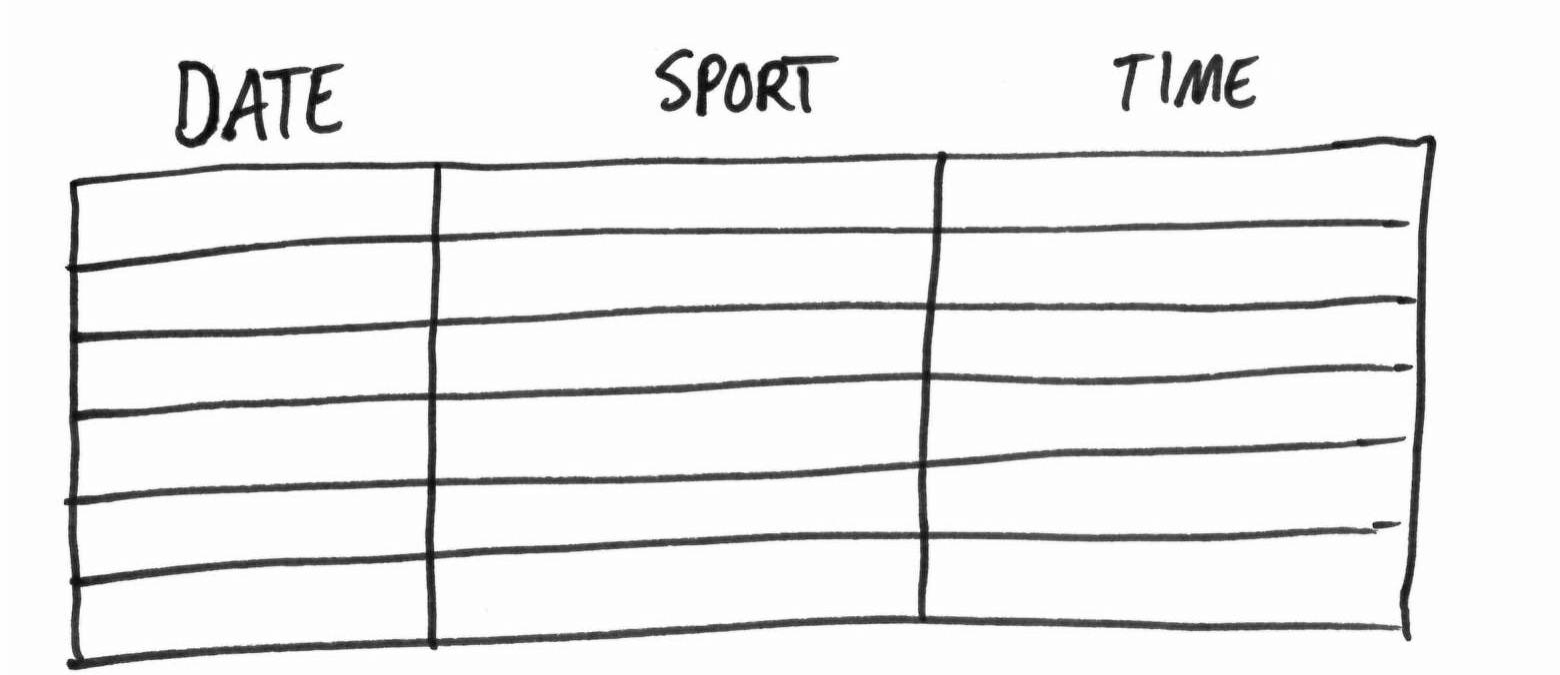 DATE SPORT TIME